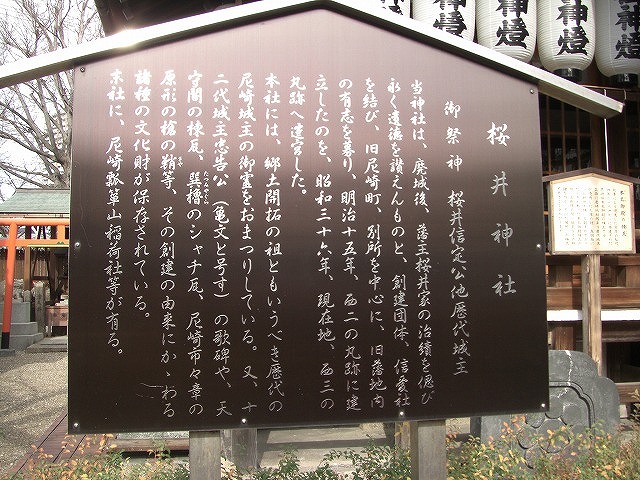 桜井神社
御祭神 桜井信定公他歴代城主
当神社は、廃城後、藩主桜井家の治績を偲び
永く遺徳を讃えんものと、創建団体、信愛社
を結び、旧尼崎町、別所を中心に、旧藩地内
の有志を募り、明治十五年、西二の丸跡に建
立したのを、昭和三十六年、現在地、西三の
丸跡へ遷宮した。
本社には、郷土開拓の祖ともいうべき歴代の
尼崎城主の御霊をおまつりしている。又、十
二代城主忠告公（亀文と号す）の歌碑や、天
守閣の棟瓦、巽櫓のシャチ瓦、尼崎市々章の
たつみやぐら
原形の槍の鞘等、その創建の由来にかゝわる
さや
諸種の文化財が保存されている。
末社に、尼崎瓢箪山稲荷社等が有る。
神燈
神燈
神燈
神燈